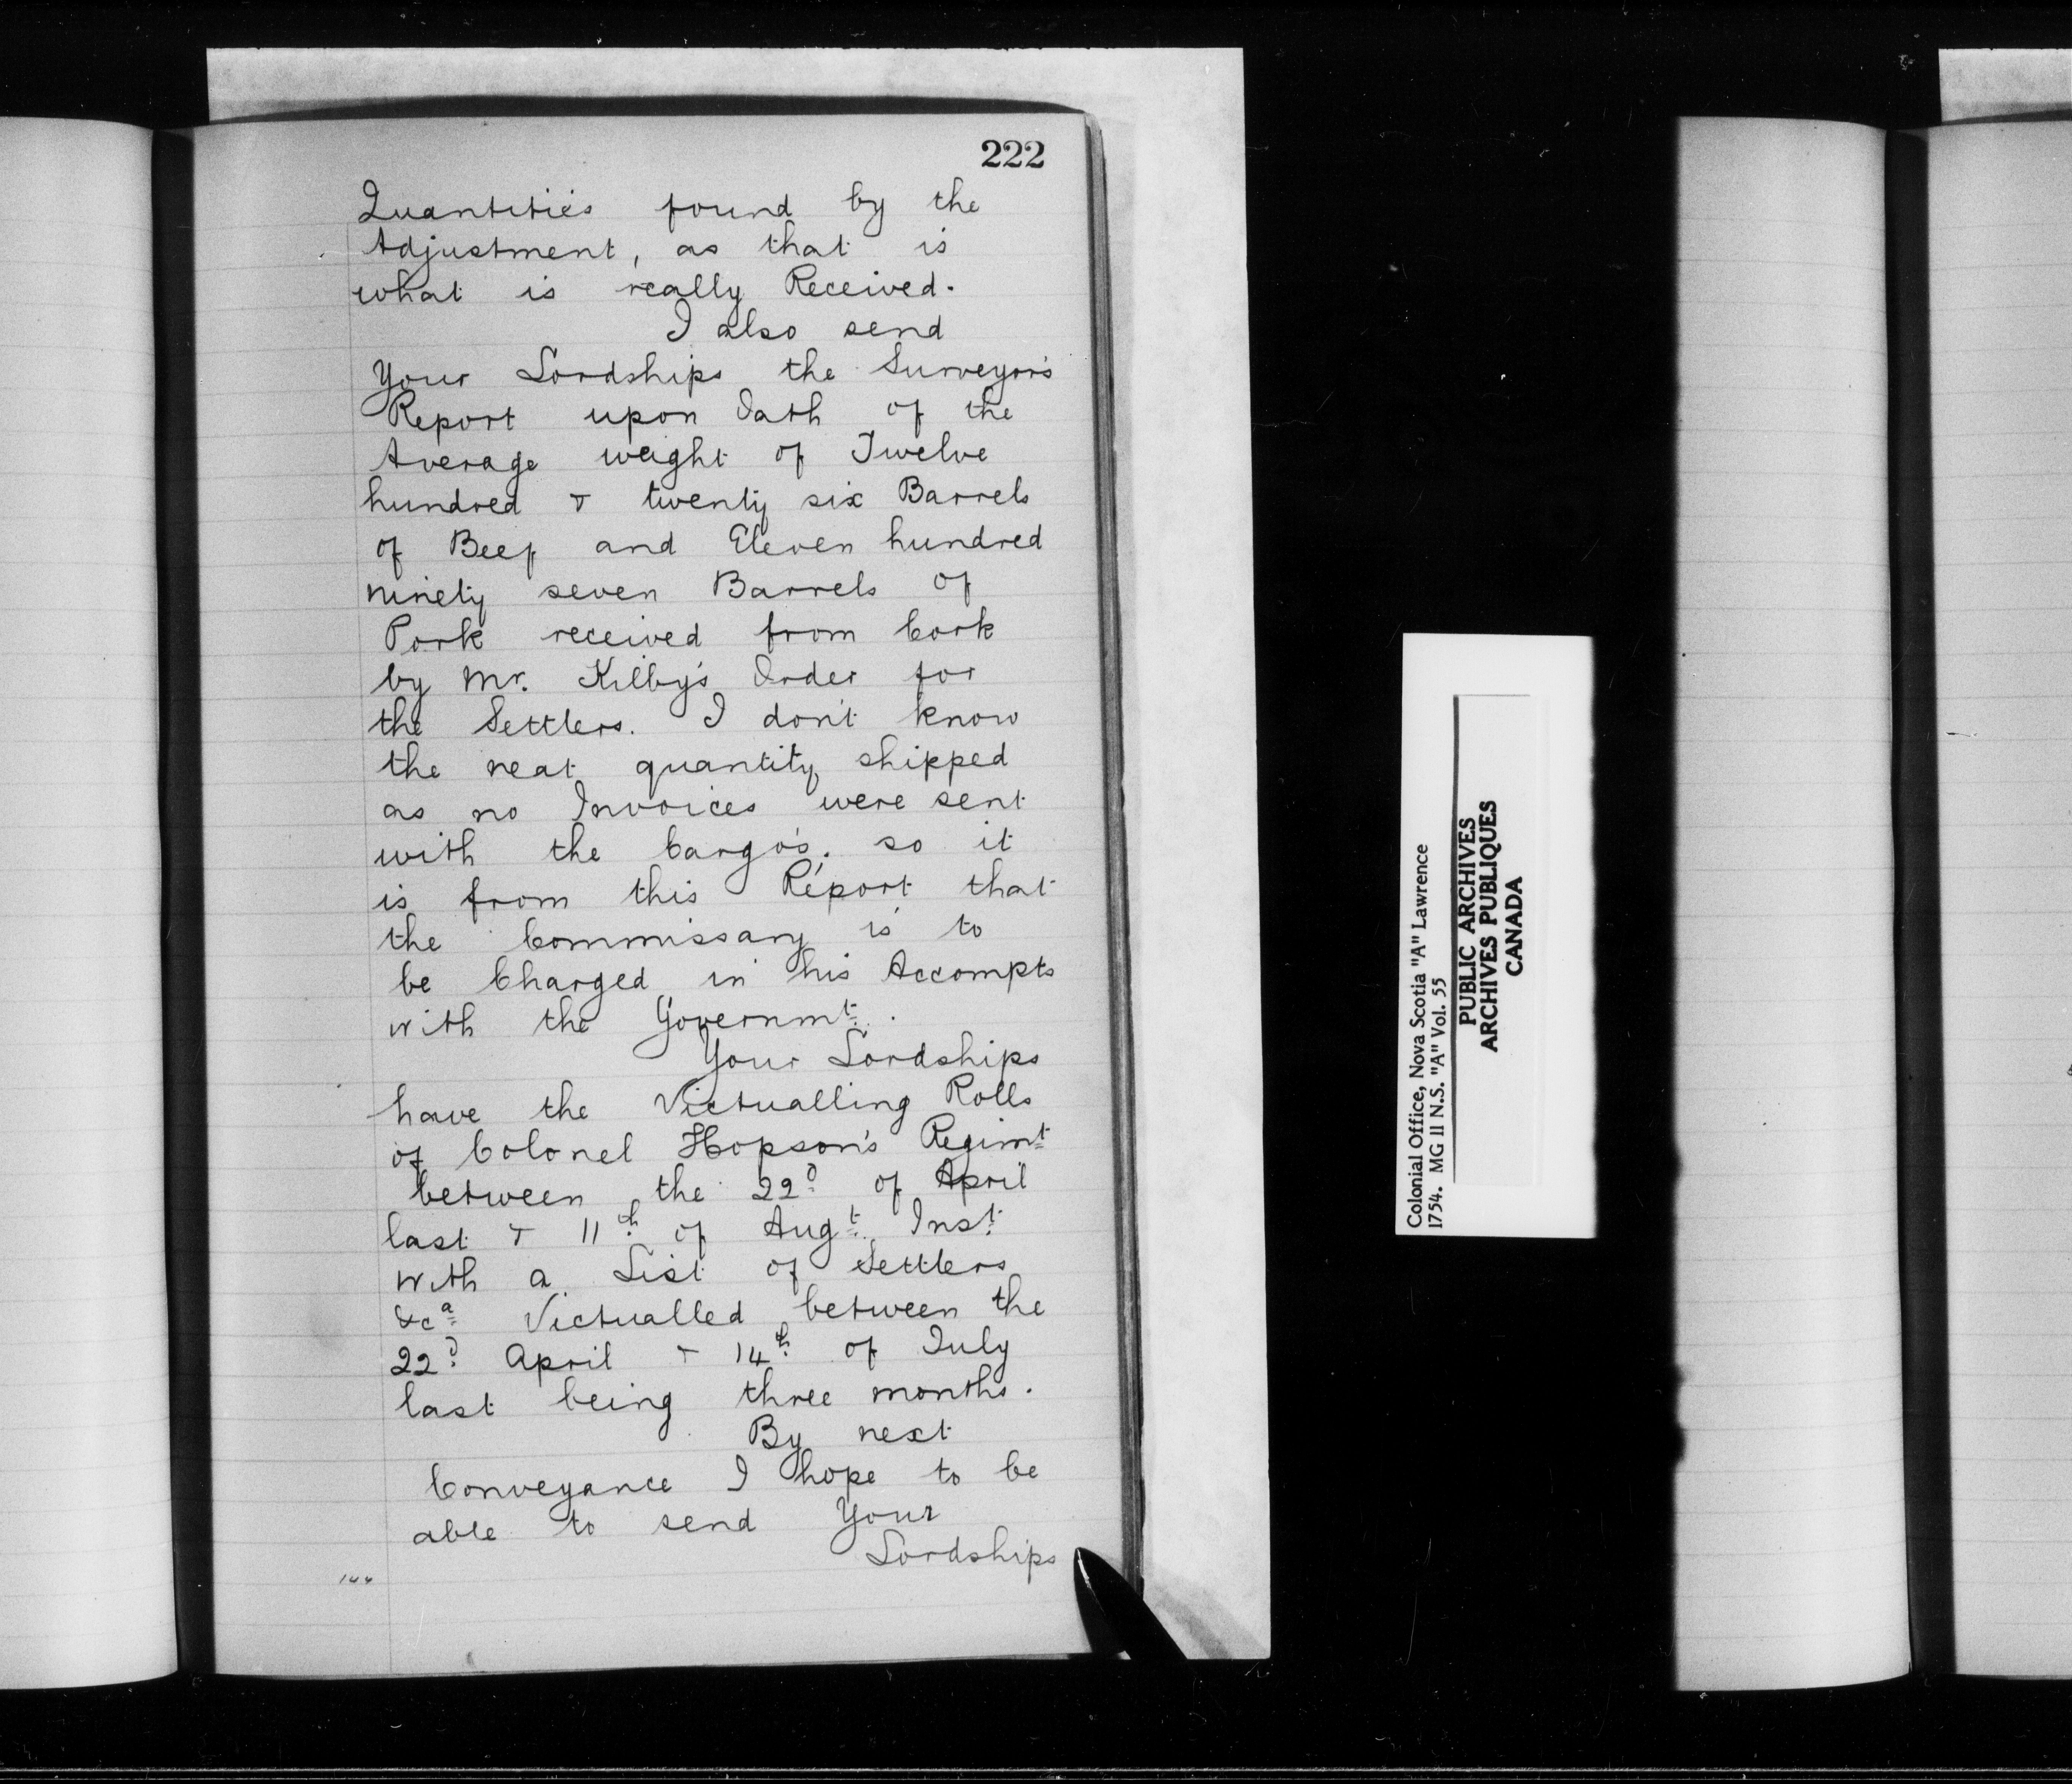 222
Quantities found by the
Adjustment, as that is
what is really Received.
I also send
Your Lordships the Surveyor's
Report upon Oath of the
Average weight of Twelve
hundred & twenty six Barrels
of Beef and Eleven hundred
ninety seven Barrels of
Pork received from Cork
by Mr. Kilby's Order for
the Settlers. I don't know
the neat quantity shipped
as no Invoices were sent
with the Cargo's, so it
is from this Report that
the Commissary is to
be Charged in his Accompts
with the Governmt.
Your Lordships
have the Victualling Rolls
of Colonel Hopson's Regimt
between the 22d of April
last & 11th of Augt Inst
with a List of Settlers
&ca Victualled between the
22d April & 14th of July
last being three months.
By next
Conveyance I hope to be
able to send Your
Lordships
Colonial Office, Nova Scotia "A" Lawrence
1754. MG 11 N.S. "A" Vol. 55
PUBLIC ARCHIVES
ARCHIVES PUBLIQUES
CANADA